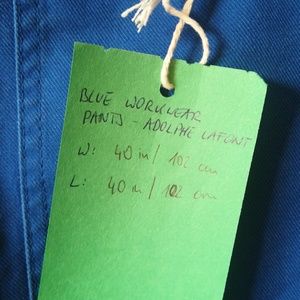 BLUE WORKWEAR
PANTS - ADOLPHE LAFONT
W: 40 in / 102 cm
L: 40 in / 102 cm